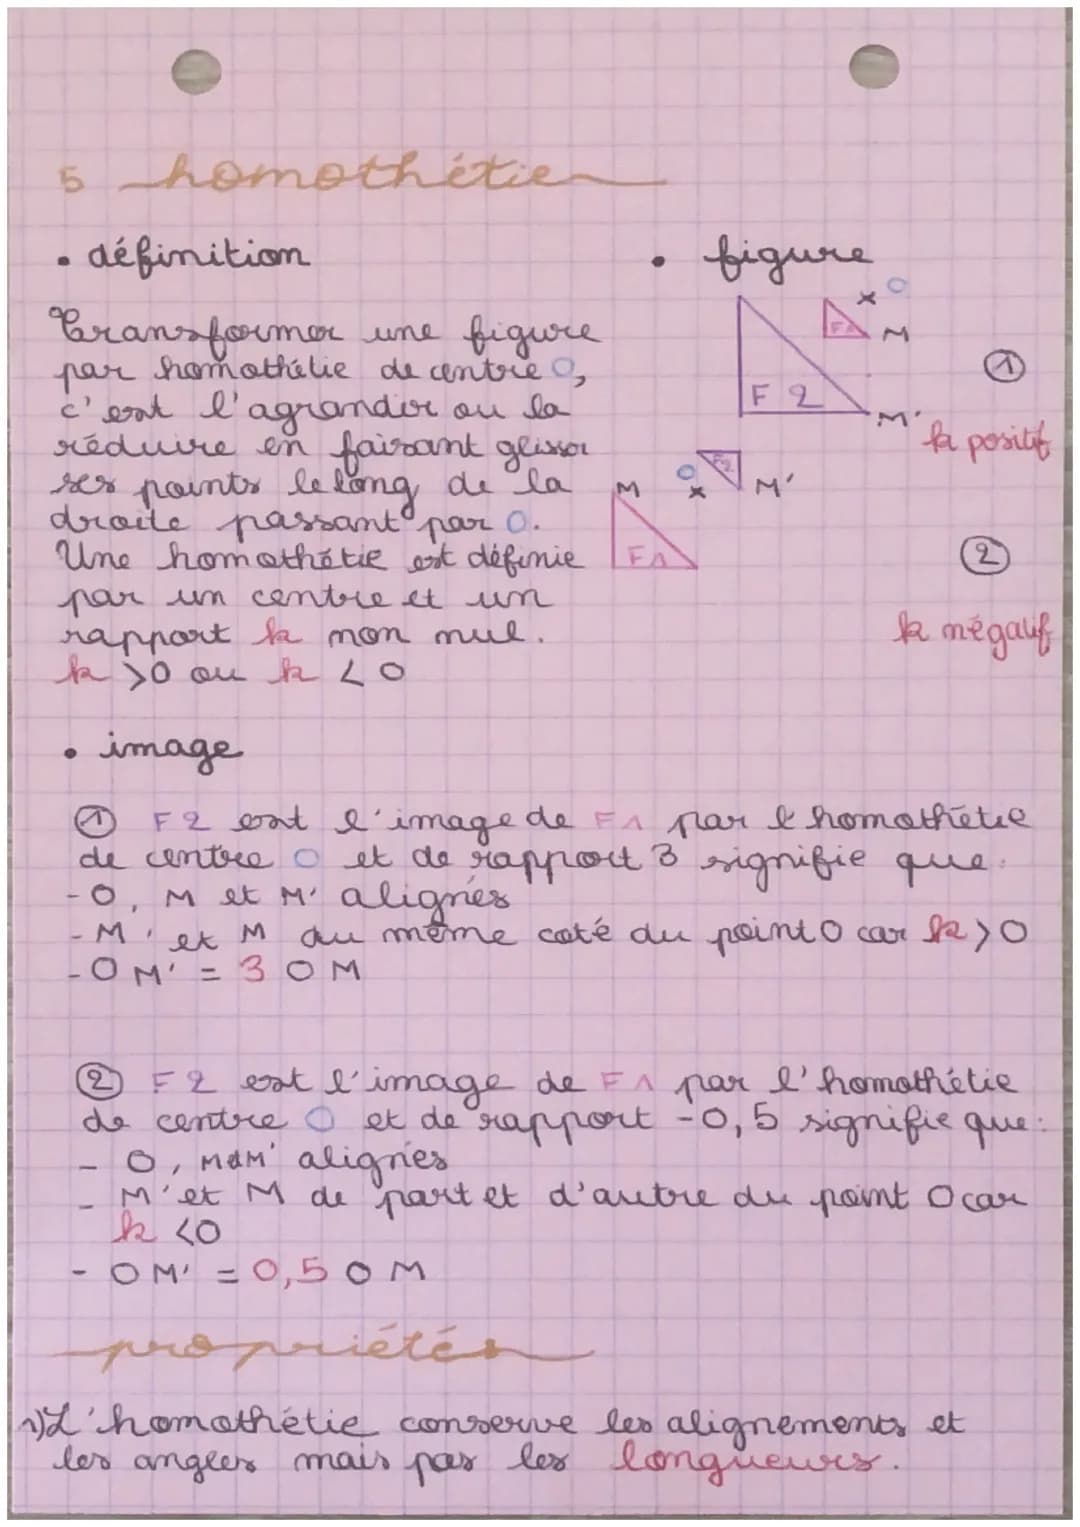 5 homothétie
• définition
Transformer une figure
par homothétie de centre O,
c'est l'agrandir ou la
réduire en faisant glisser
ses points le long de la
droite passant par O.
Une homothétie est définie
par un centre et un
rapport k non nul.
k >0 ou k <0
• figure
O
F1
M
F2
M'
1
k positif
O
F2
M'
M
F1
2
k négatif
• image
1 F2 est l'image de F1 par l'homothétie
de centre O et de rapport 3 signifie que:
- O, M et M' alignés
- M' et M du même coté du point O car k>0
- OM' = 3 OM
2 F2 est l'image de F1 par l'homothétie
de centre O et de rapport -0,5 signifie que:
- O, M et M' alignés
- M' et M de part et d'autre du point O car
k <0
- OM' = 0,5 OM
propriétés
1) L'homothétie conserve les alignements et
les angles mais pas les longueurs.